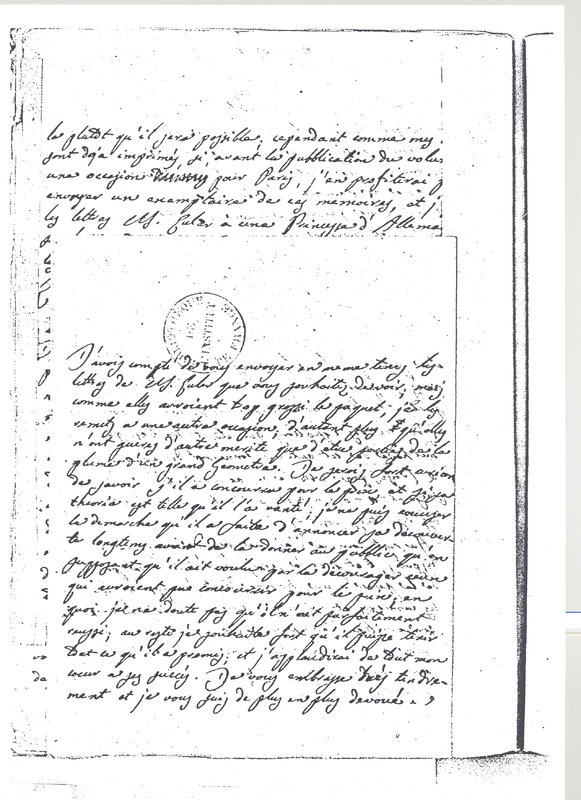 le plutôt qu'il sera possible, cependant comme mes
sont déja imprimés, si avant la publication du volu
une occasion pour Paris, j'en profiterai p
envoyer un exemplaire de ces mémoires, et j
les lettres M. Euler à une Princesse d'Allema
J'avois compté de vous envoyer en meme tems les
lettres de M. Euler que vous souhaités de voir, mais
comme elles auroient trop grossi le paquet je les
remets a une autre occasion, d'autant plus qu'elles
n'ont guères d'autre merite que d'etre parties de la
plume d'un grand Geometre. Je serois fort curieux
de savoir s'il a concouru pour le prix, et si sa
theorie est telle qu'il l'a vanté; je ne puis
la demarche qu'il a faite d'annoncer sa découver
te longtems avant de la donner au public, qu'en
supposant qu'il ait voulu par là décourager ceux
qui auroient pu concourir pour le prix, en
quoi je ne doute pas qu'il n'ait parfaitement
reussi; au reste je souhaite fort qu'il puisse tenir
tout ce qu'il a promis, et j'applaudirai de tout mon
cœur a ses succés. Je vous embrasse très tendre-
ment et je vous suis de plus en plus devoué